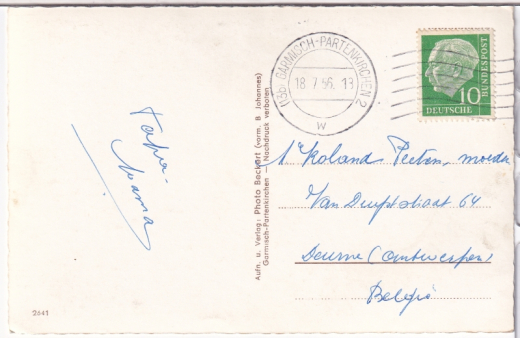 Papa.
Mama
2641
Aufn. u. Verlag: Photo Beckert (vorm. B. Johannes)
Garmisch-Partenkirchen — Nachdruck verboten
(13b) GARMISCH-PARTENKIRCHEN 2
18.7.56.13
w
DEUTSCHE BUNDESPOST
10
Roland Peeters,
Van Duyststraat 64
Deurne (Antwerpen)
België